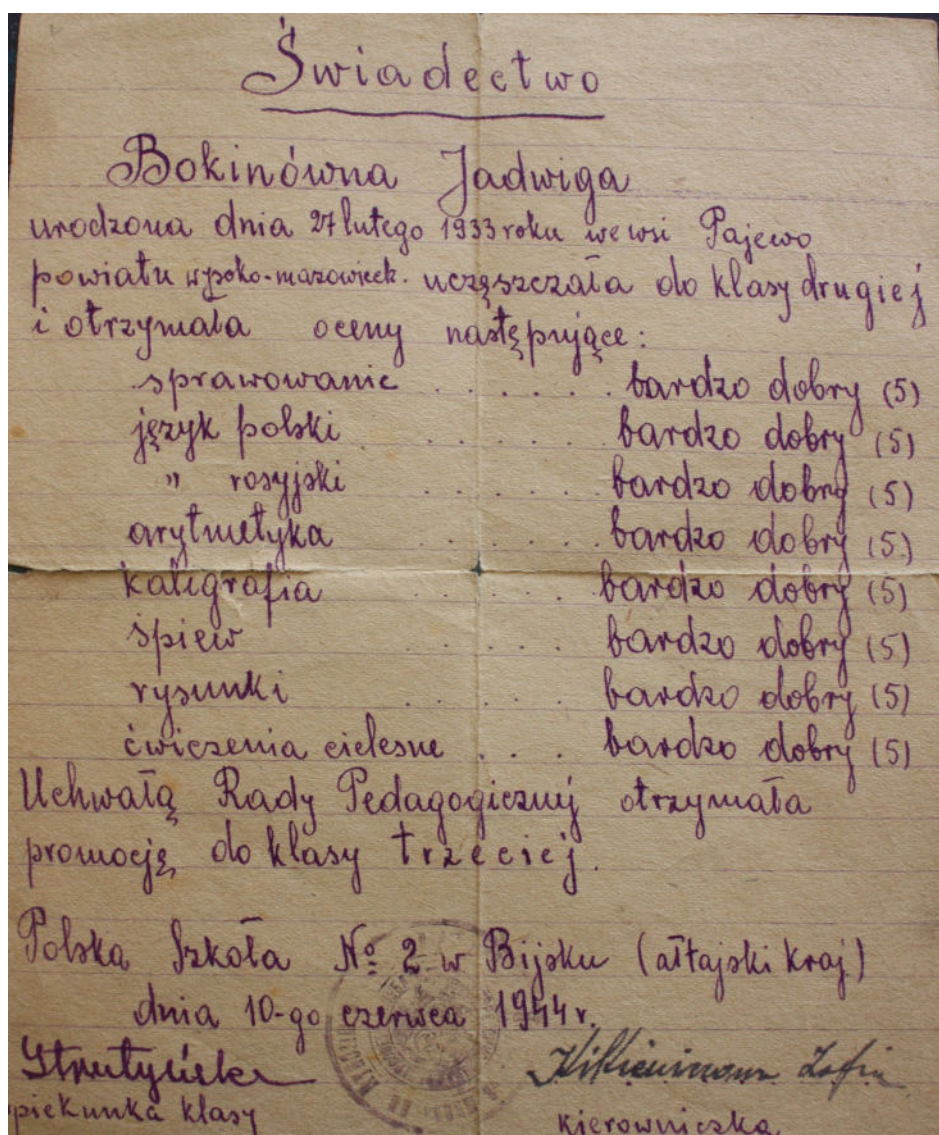 Świadectwo
Bokinówna Jadwiga
urodzona dnia 27 lutego 1933 roku we wsi Pajewo
powiatu wysoko-mazowieck. uczęszczała do klasy drugiej
i otrzymała oceny następujące:
sprawowanie . . . . . bardzo dobry (5)
język polski . . . . . . bardzo dobry (5)
" rosyjski . . . . . . bardzo dobry (5)
arytmetyka . . . . . . bardzo dobry (5)
kaligrafia . . . . . . bardzo dobry (5)
śpiew . . . . bardzo dobry (5)
rysunki . . . . bardzo dobry (5)
ćwiczenia cielesne . . . bardzo dobry (5)
Uchwałą Rady Pedagogicznej otrzymała
promocję do klasy trzeciej.
Polska Szkoła № 2 w Bijsku (ałtajski kraj)
dnia 10-go czerwca 1944 r.
Strutyńska Zofia
piekunka klasy kierowniczka